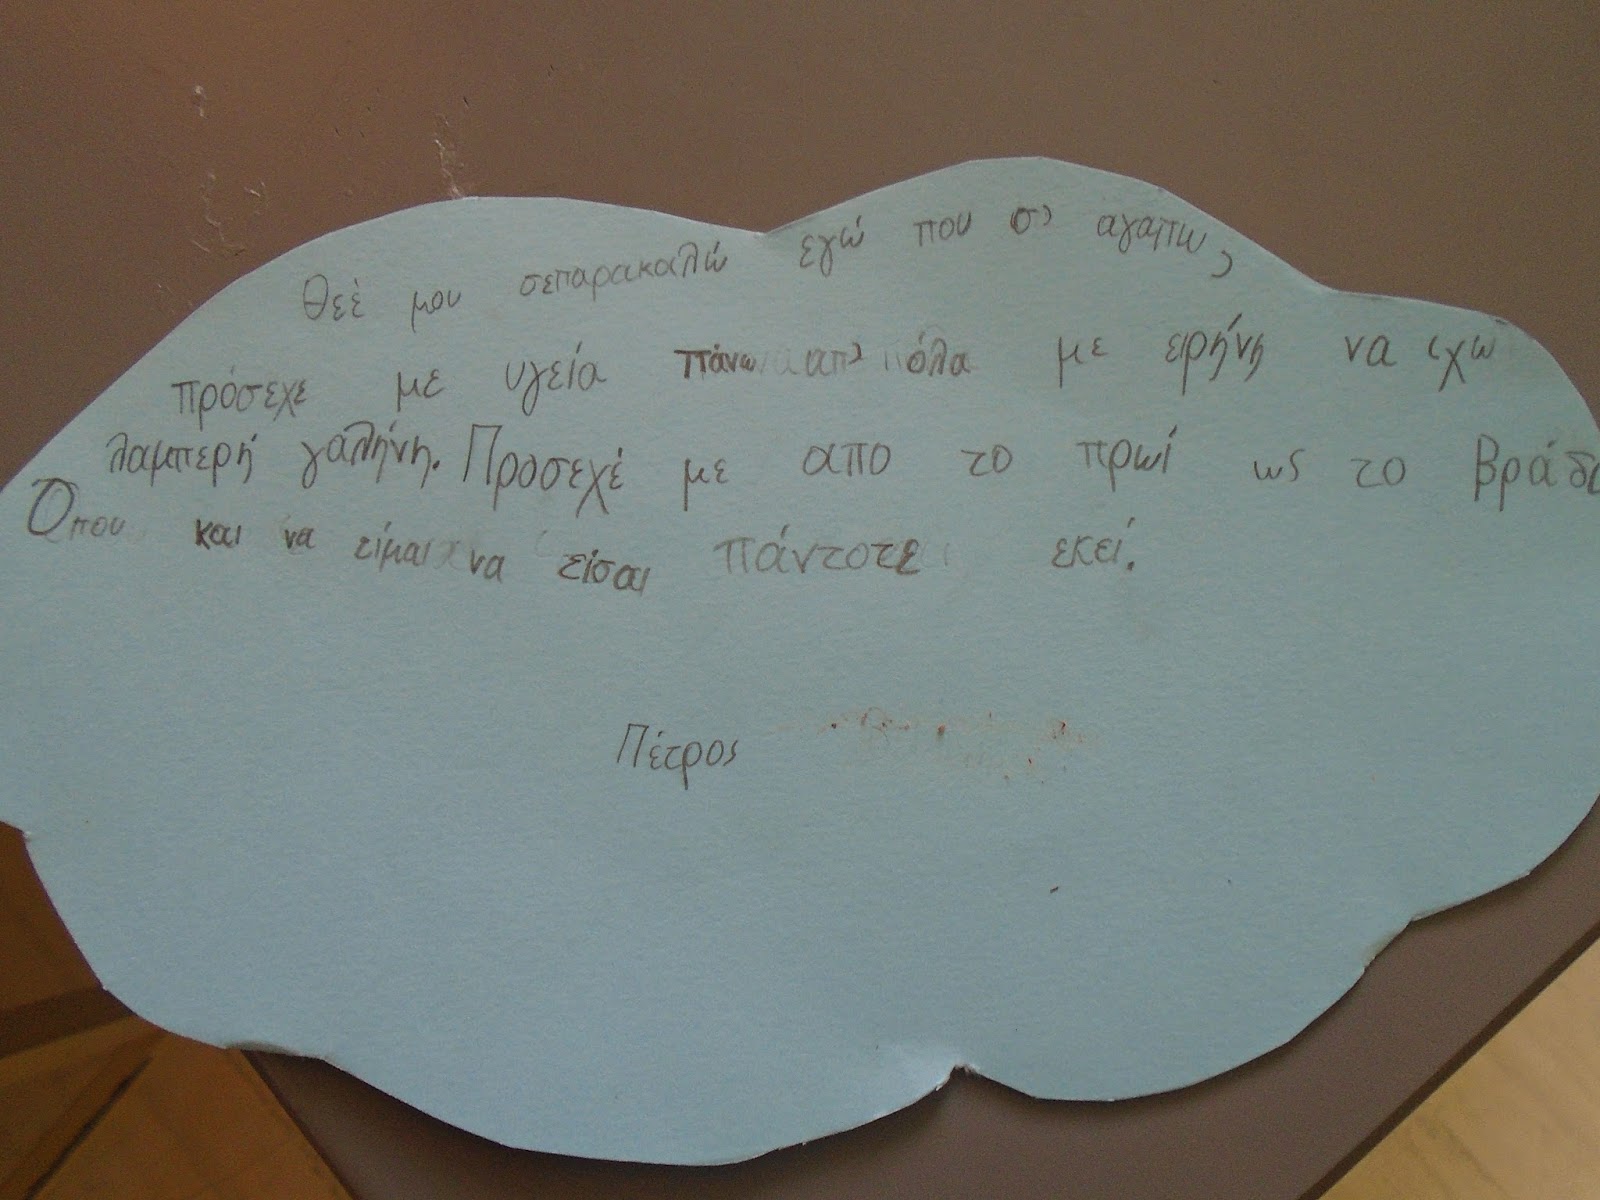 Θεέ μου σεπαρακαλώ εγώ που σ' αγαπω,
πρόσεχε με υγεία πάνω απ' όλα με ειρήνη να έχω
λαμπερή γαλήνη. Προσεχέ με απο το πρωί ως το βράδυ
Όπου και να είμαι να είσαι πάντοτε εκεί.
Πέτρος